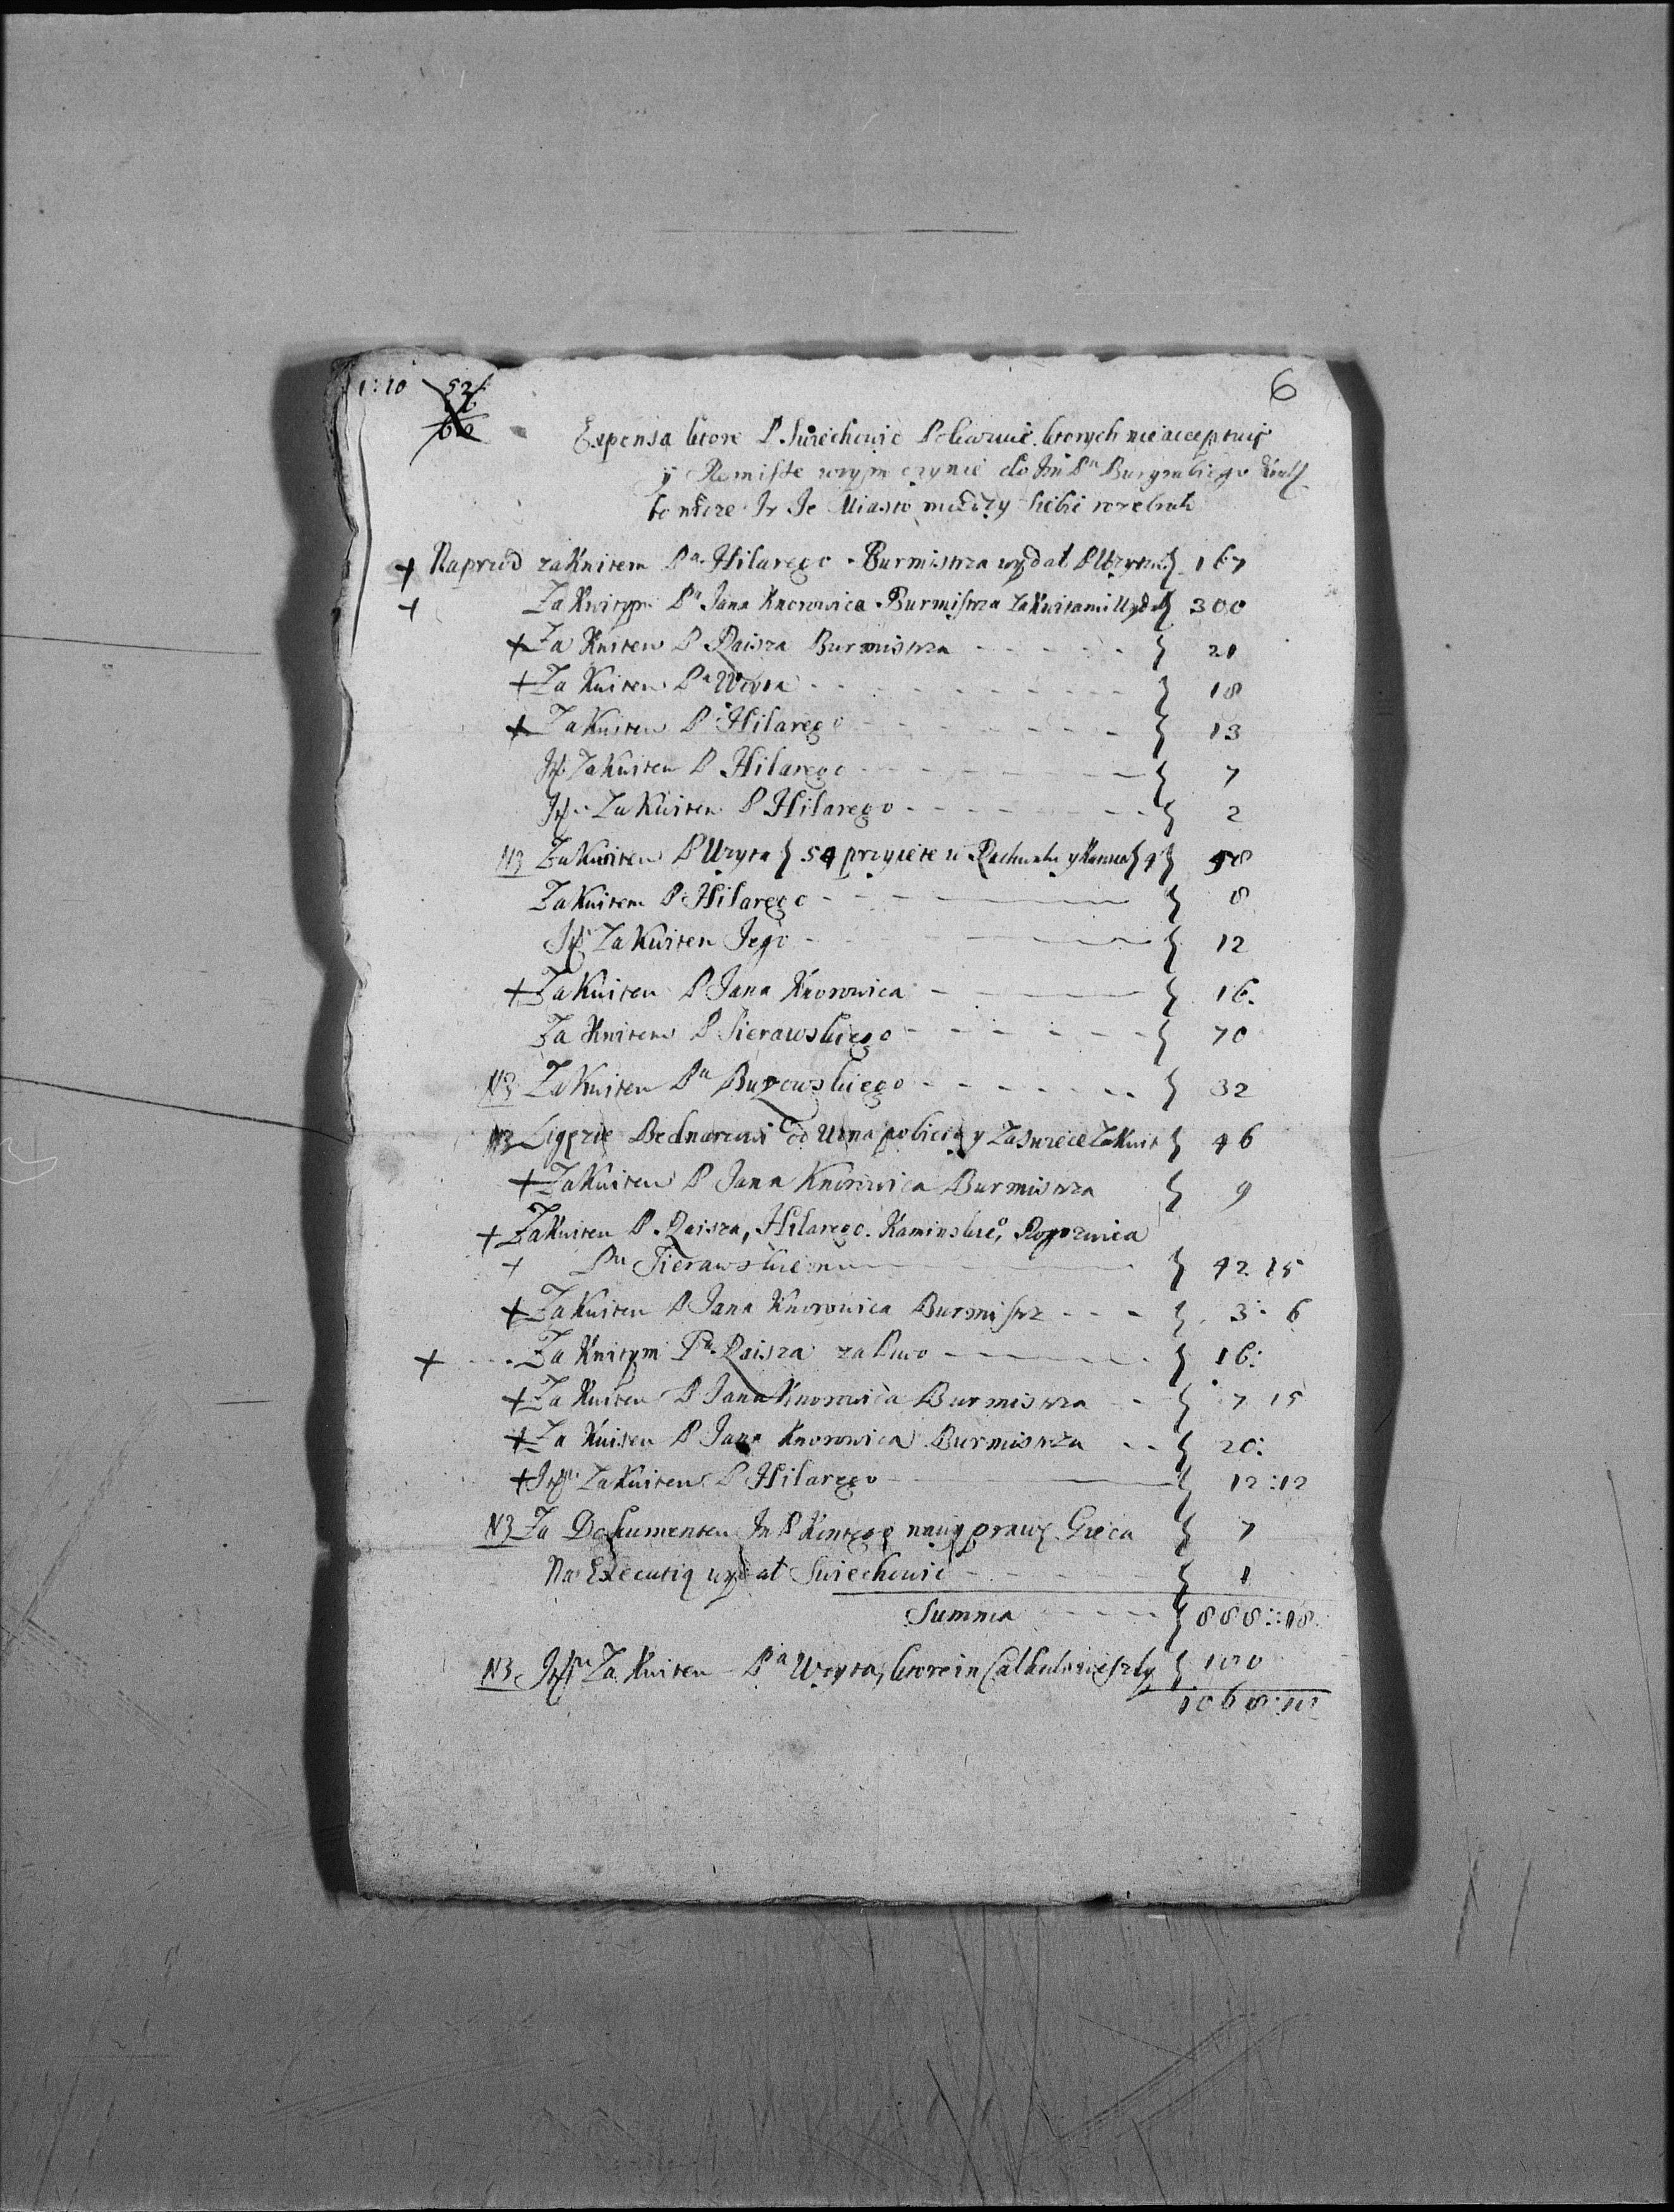 1:10 52
6
Expensa ktore P. Swiechowic Pokazuie ktorych nie acceptuię
y Remiste wtym czynie do Im Pa Burgrabiego
bo miedzy siebie rozebrało
+ Naprzod za Kwitem Pa Hilarego Burmistrza wydał } 167
+ Za Kwitym Pa Jana Knorowica Burmistrza za Kwitami Wydał } 300
+ Za Kwitem P Raisza Burmistrza } 21
+ Za Kwitem Pa Woyta } 18
+ Za Kwitem P Hilarego } 13
It: Za Kwitem P Hilarego } 7
It: Za Kwitem P Hilarego } 2
N3 Za Kwitem P Woyta } 54 przyięte w Rachunku y } 4 } 58
Za Kwitem P Hilarego } 8
It: Za Kwitem Jego } 12
+ Za Kwitem P Jana Knorowica } 16.
Za Kwitem P Sierawskiego } 70
N3 Za Kwitem Pa Burowskiego } 32
N3 Bednarowi od Wina y Za Kwit } 46
+ Za Kwitem P Jana Knorowica Burmistrza } 9
+ Za Kwitem P. Raisza, Hilarego. Kaminskie°, Rogoznica
+ Pu Sierawskiemu } 42 15
+ Za Kwitem P Jana Knorowica Burmistrz } 3: 6
+ Za Kwitym Pa Raisza za Piwo } 16:
+ Za Kwitem P Jana Knorowica Burmistrza } 7 15
+ Za Kwitem P Jana Knorowica Burmistrza } 20:
+ It: Za Kwitem P Hilarego } 12:12
N3 Za Dokumentem Im P } 7
Na Executią wydał Swiechowic } 1
Summa } 888::18
N3 It: Za Kwitem Pa Woyta, ktore in } 180
1068:18